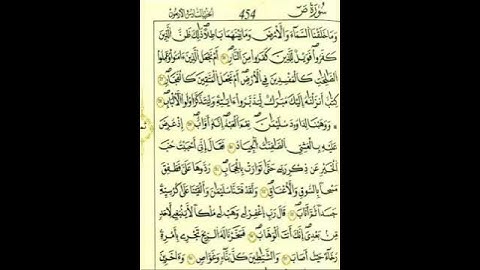 سُورَةُ صٓ
454
وَمَا خَلَقْنَا السَّمَآءَ وَالْأَرْضَ وَمَا بَيْنَهُمَا بَاطِلًا ذَٰلِكَ ظَنُّ الَّذِينَ
كَفَرُوا فَوَيْلٌ لِّلَّذِينَ كَفَرُوا مِنَ النَّارِ أَمْ نَجْعَلُ الَّذِينَ ءَامَنُوا وَعَمِلُوا
الصَّٰلِحَٰتِ كَالْمُفْسِدِينَ فِي الْأَرْضِ أَمْ نَجْعَلُ الْمُتَّقِينَ كَالْفُجَّارِ
كِتَٰبٌ أَنزَلْنَٰهُ إِلَيْكَ مُبَٰرَكٌ لِّيَدَّبَّرُوا ءَايَٰتِهِ وَلِيَتَذَكَّرَ أُولُوا الْأَلْبَٰبِ
وَوَهَبْنَا لِدَاوُدَ سُلَيْمَٰنَ نِعْمَ الْعَبْدُ إِنَّهُ أَوَّابٌ إِذْ عُرِضَ
عَلَيْهِ بِالْعَشِيِّ الصَّٰفِنَٰتُ الْجِيَادُ فَقَالَ إِنِّي أَحْبَبْتُ حُبَّ
الْخَيْرِ عَن ذِكْرِ رَبِّي حَتَّىٰ تَوَارَتْ بِالْحِجَابِ رُدُّوهَا عَلَيَّ فَطَفِقَ
مَسْحًا بِالسُّوقِ وَالْأَعْنَاقِ وَلَقَدْ فَتَنَّا سُلَيْمَٰنَ وَأَلْقَيْنَا عَلَىٰ كُرْسِيِّهِ
جَسَدًا ثُمَّ أَنَابَ قَالَ رَبِّ اغْفِرْ لِي وَهَبْ لِي مُلْكًا لَّا يَنبَغِي لِأَحَدٍ
مِّن بَعْدِي إِنَّكَ أَنتَ الْوَهَّابُ فَسَخَّرْنَا لَهُ الرِّيحَ تَجْرِي بِأَمْرِهِ
رُخَآءً حَيْثُ أَصَابَ وَالشَّيَٰطِينَ كُلَّ بَنَّآءٍ وَغَوَّاصٍ وَءَاخَرِينَ